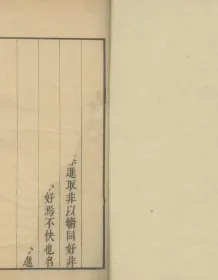 進取非以犗同好非
好焉不快也名
進